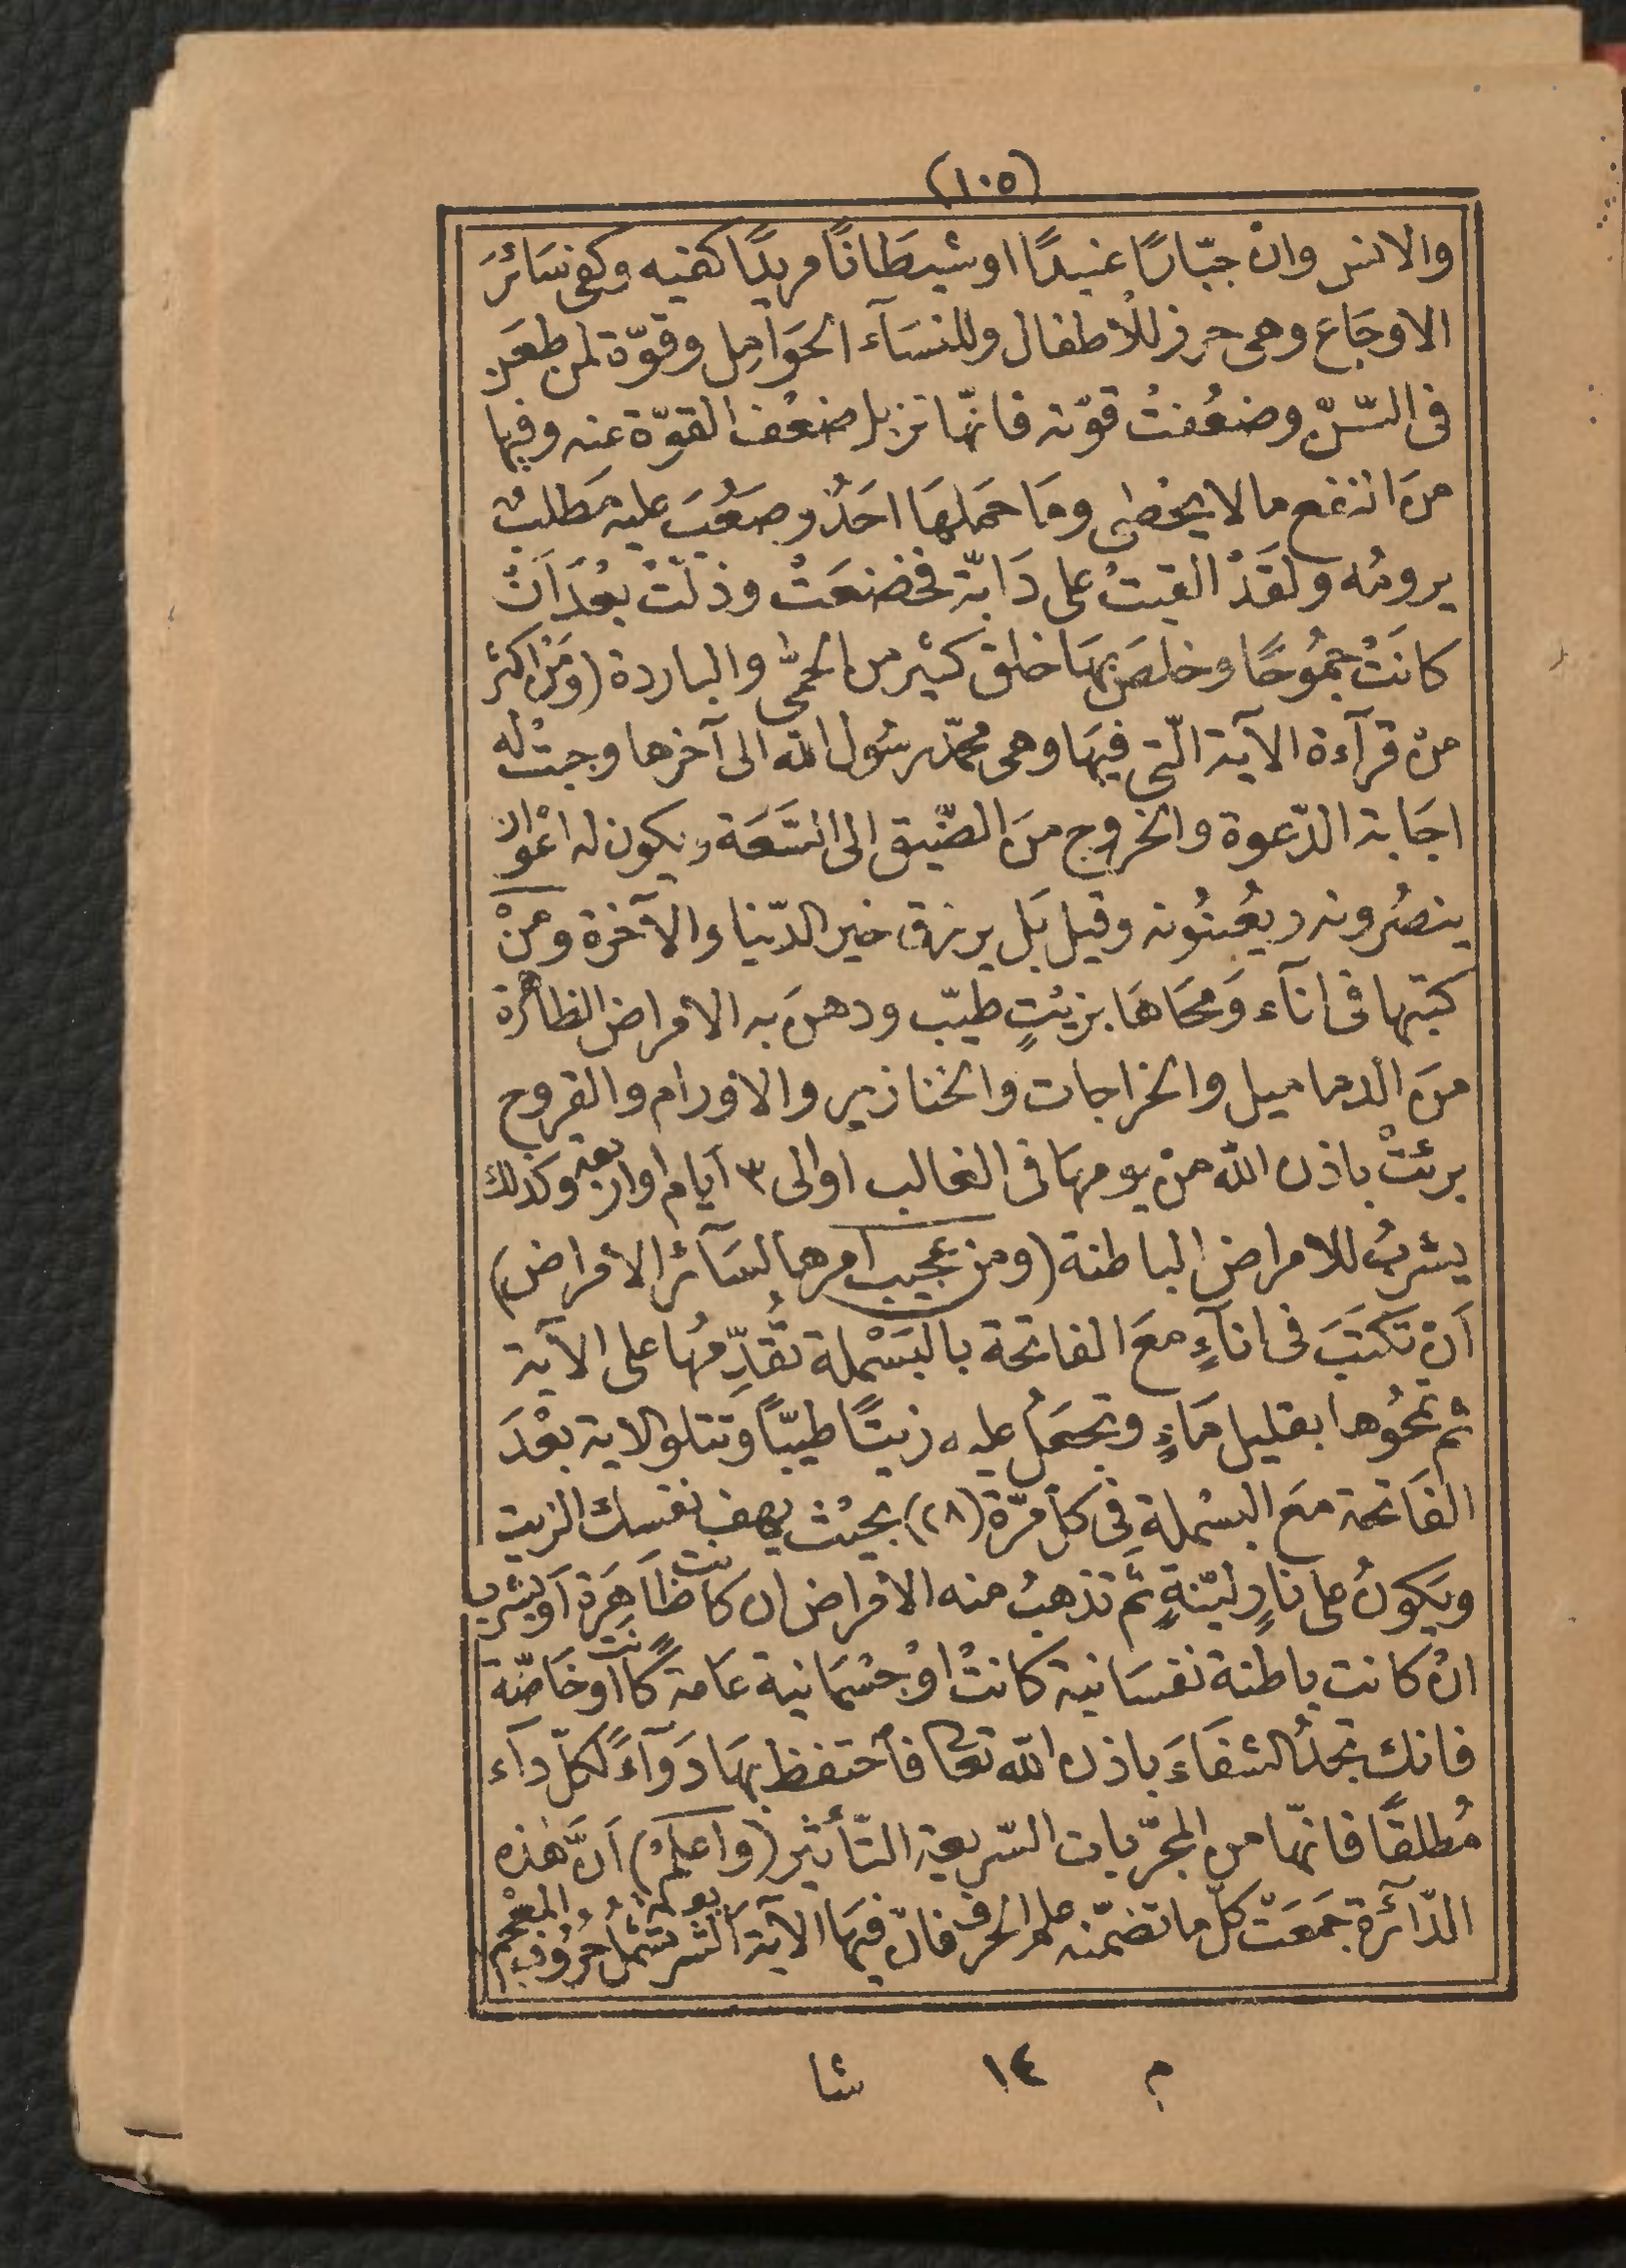 (١٠٥)
والانس وان جبّارًا عنيدًا او شيطَانًا مريدًا كفيه وكفى سَائرَ
الاوجَاع وهى حرز للأطفال وللنسَآء الحَوامِل وقوّة لمن طعَن
فى السّنّ وضعُفتْ قوّته فانّها تزيل ضعْف القوّة عنه وفيها
منَ النفع ما لا يحْصٰى ومَا حمَلهَا احَدٌ وصَعُبَ عليه مَطلبٌ
يرومُه ولقَدْ القيتْ على دَابّة فخضعَتْ وذلّتْ بعْدَ اَنْ
كانَتْ جمُوحًا وخلصَ بهَا خلق كثير من الحمّى والباردة (ومَنْ اكثر
منْ قرآءة الآية الّتى فيهَا وهى محمّد رسُول الله الى آخرها وجبتْ له
اجَابة الدّعوة والخروج منَ الضّيق الى السّعَة ويكون له اعْوان
ينصُرونه ويعُينُونه وقيل بَل يرزق خير الدّنيا والآخرة ومَنْ
كتبَها فى انآء وَمحَاهَا بزيْتٍ طيّب ودهنَ به الامراض الظاهرة
منَ الدماميل والخراجات والخنازير والاورام والقروح
برئتْ باذن الله منْ يومهَا فى الغالب او الى ٣ اَيام او اربعة وكذلك
يشربُ للامراض الباطنة (ومن عجيب امرها لسَآئر الامراض)
اَنْ تَكتبَ فى انآءٍ معَ الفاتحة بالبَسْملة تقُدِّمُها على الآية
ثمْ تمحُوها بقليل مَاءٍ وتجعَلُ عليه زيتًا طيّبًا وَتتلو الاية بعْدَ
الفَاتحة معَ البسْملةِ فى كلّ مرّة (٢٨) بحيْث يصف نفسك الزيت
ويَكونُ على نارٍ ليّنةٍ ثمَّ تذهبُ منه الامراض ان كانت ظاَهِرَة اَو يشرب
انْ كانت باطنة نفسَانية كانتْ اوْ جسْمَانية عَامة كانت او خَاصّة
فانك تجدُ الشفَاءَ باذن الله تعالى فاَحتفظ بهَا دَوآءً لكلّ دآء
مُطلقًا فانّها من المجرّبات السّريعة التّأثير (واعلمْ) اَنَّ هٰذه
الدّآئرة جمَعَتْ كلّ ما تضمّنه علم الحرف فانّ فيهَا الآية الشريفة تشمُل حرُوف المعْجم
م ١٤ شا